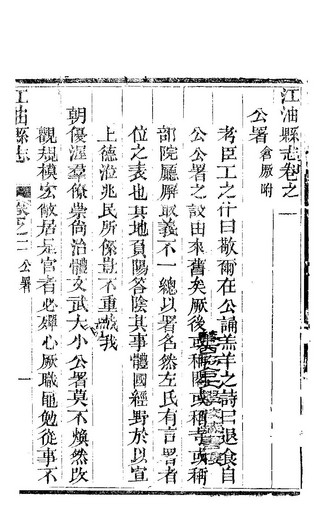 江油縣志卷之一
公署 倉廒附
考臣工之什曰敬爾在公誦羔羊之詩曰退食自
公公署之設由來舊矣厥後或稱閣或稱寺或稱
部院廳屏取義不一總以署名然左氏有言署者
位之表也其地負陽荅陰其事體國經野於以宣
上德涖兆民所係豈不重哉我
朝優渥羣僚崇尚治體文武大小公署莫不煥然改
觀規模宏敞居是官者必殫心厥職黽勉從事不
江油縣志 卷之一 公署 一